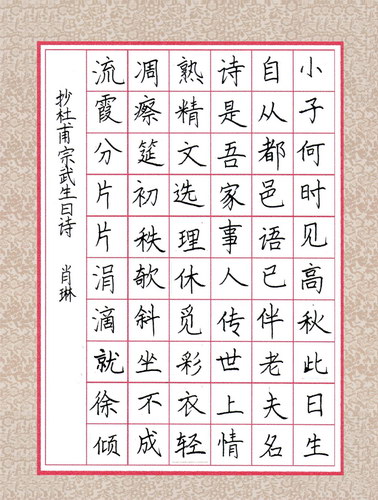 小子何时见高秋此日生
自从都邑语已伴老夫名
诗是吾家事人传世上情
熟精文选理休觅彩衣轻
凋瘵筵初秩欹斜坐不成
流霞分片片涓滴就徐倾
抄杜甫宗武生日诗 肖琳